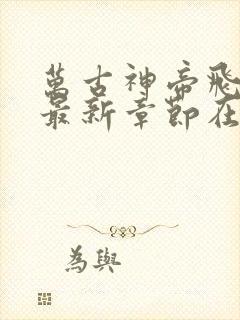 萬古神帝飛
最新章節在
為與